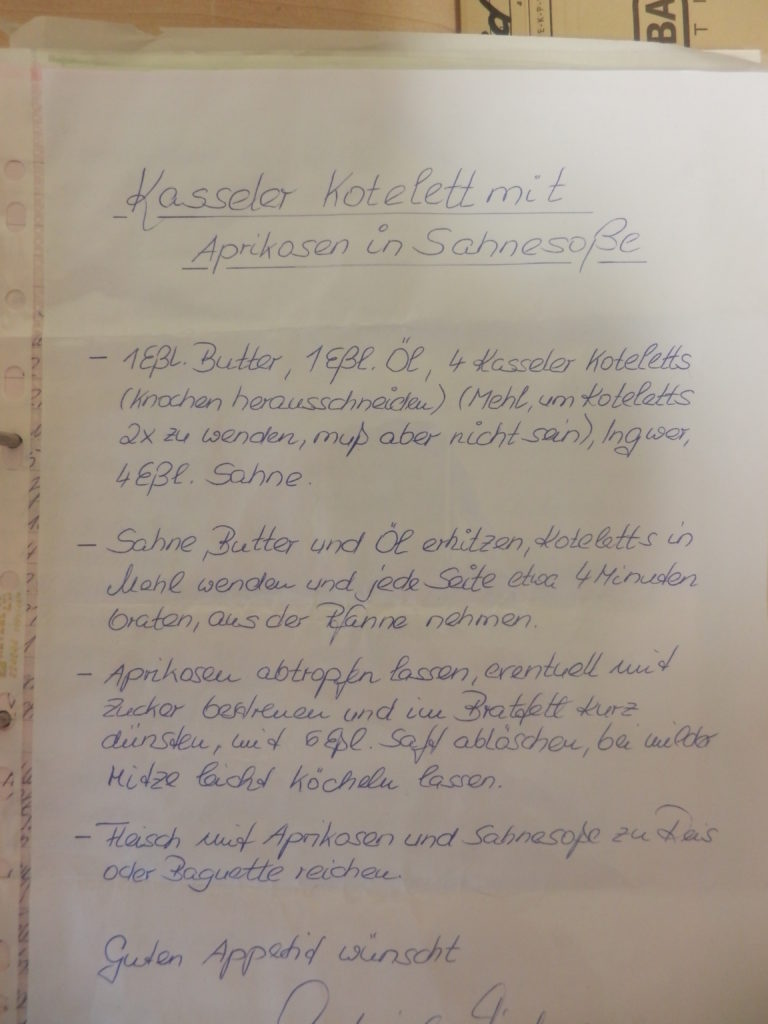 Kasseler Kotelett mit
Aprikosen in Sahnesoße
- 1 Eßl. Butter, 1 Eßl. Öl, 4 Kasseler Koteletts
(Knochen herausschneiden) (Mehl, um Koteletts
2x zu wenden, muß aber nicht sein), Ingwer,
4 Eßl. Sahne.
- Sahne, Butter und Öl erhitzen, Koteletts in
Mehl wenden und jede Seite etwa 4 Minuten
braten, aus der Pfanne nehmen.
- Aprikosen abtropfen lassen, eventuell mit
Zucker bestreuen und im Bratfett kurz
dünsten, mit 6 Eßl. Saft ablöschen, bei milder
Hitze leicht köcheln lassen.
- Fleisch mit Aprikosen und Sahnesoße zu Reis
oder Baguette reichen.
Guten Appetit wünscht